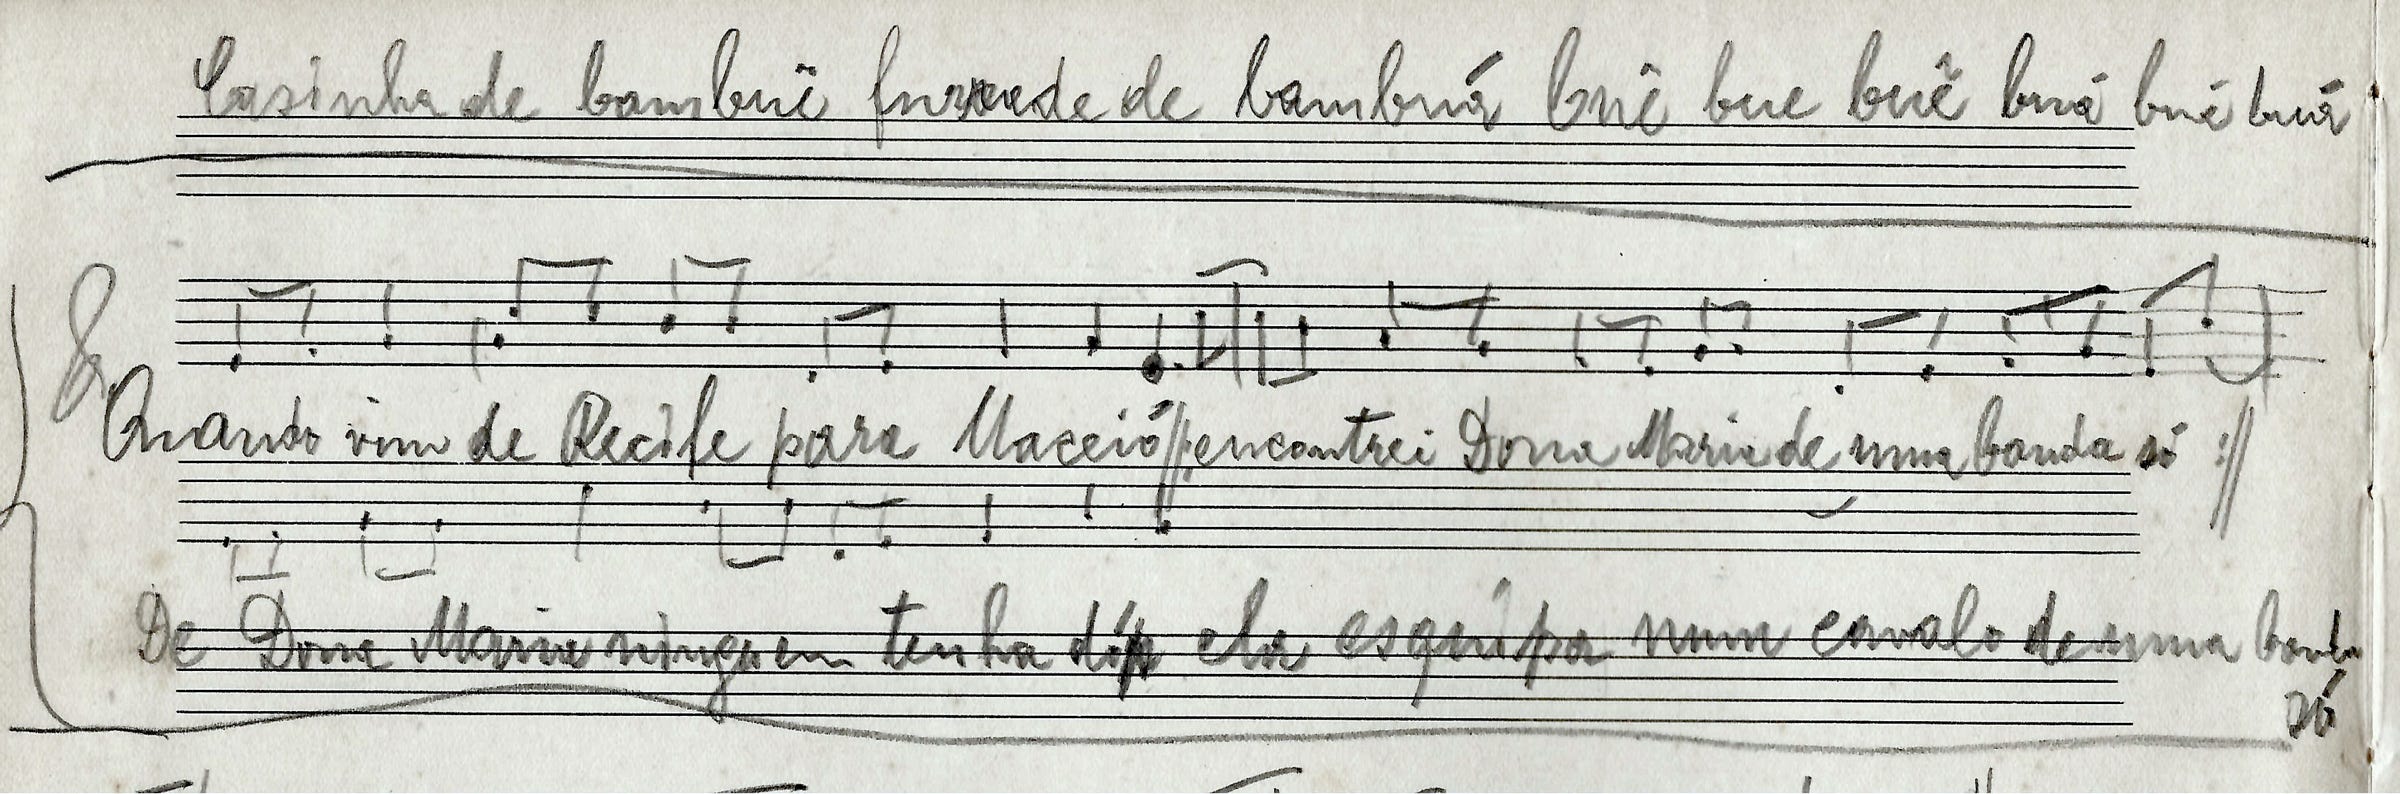 Casinha de bambuê de bambuá buê bue buê buá buê buá
Quando vim de Recife para Maceió encontrei Dona Maria de uma banda só
De Dona Maria ninguem tenha dó ela esquipa num cavalo de uma banda
só